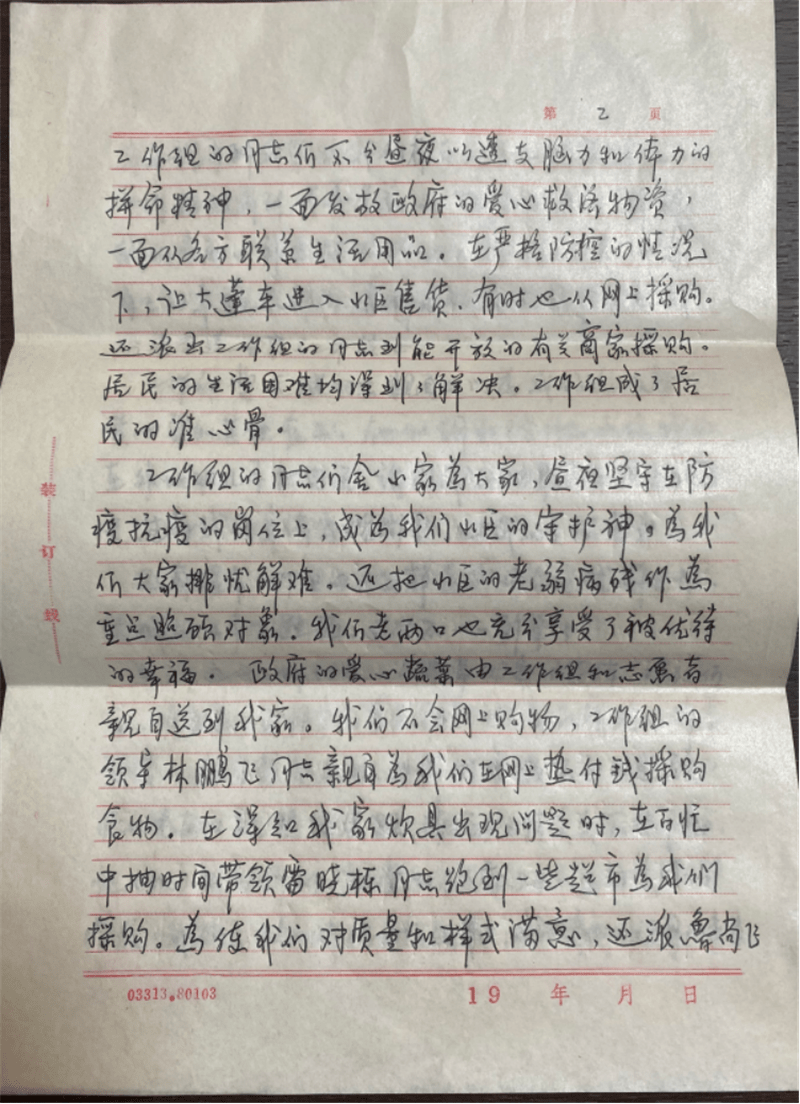 第 2 页
工作组的同志们不分昼夜以透支脑力和体力的
拼命精神，一面发放政府的爱心救济物资，
一面从各方联系生活用品。在严格防控的情况
下，让大蓬车进入小区售货、有时也从网上採购。
还派出工作组的同志到能开放的有关商家採购。
居民的生活困难均得到了解决。工作组成了居
民的准心骨。
工作组的同志们舍小家為大家，昼夜坚守在防
疫抗疫的岗位上，成為我们小区的守护神。為我
们大家排忧解难。还把小区的老弱病残作為
重点照顾对象。我们老两口也充分享受了被优待
的幸福。政府的爱心蔬菜由工作组和志愿者
親自送到我家。我们不会网上购物，工作组的
领导林鹏飞同志親自為我们在网上垫付钱採购
食物。在得知我家炊具出现问题时，在百忙
中抽时间带领雷晓栋同志跑到一些超市為我们
採购。為使我们对质量和样式满意，还派鲁尚飞
装
订
线
03313.80103
19 年 月 日